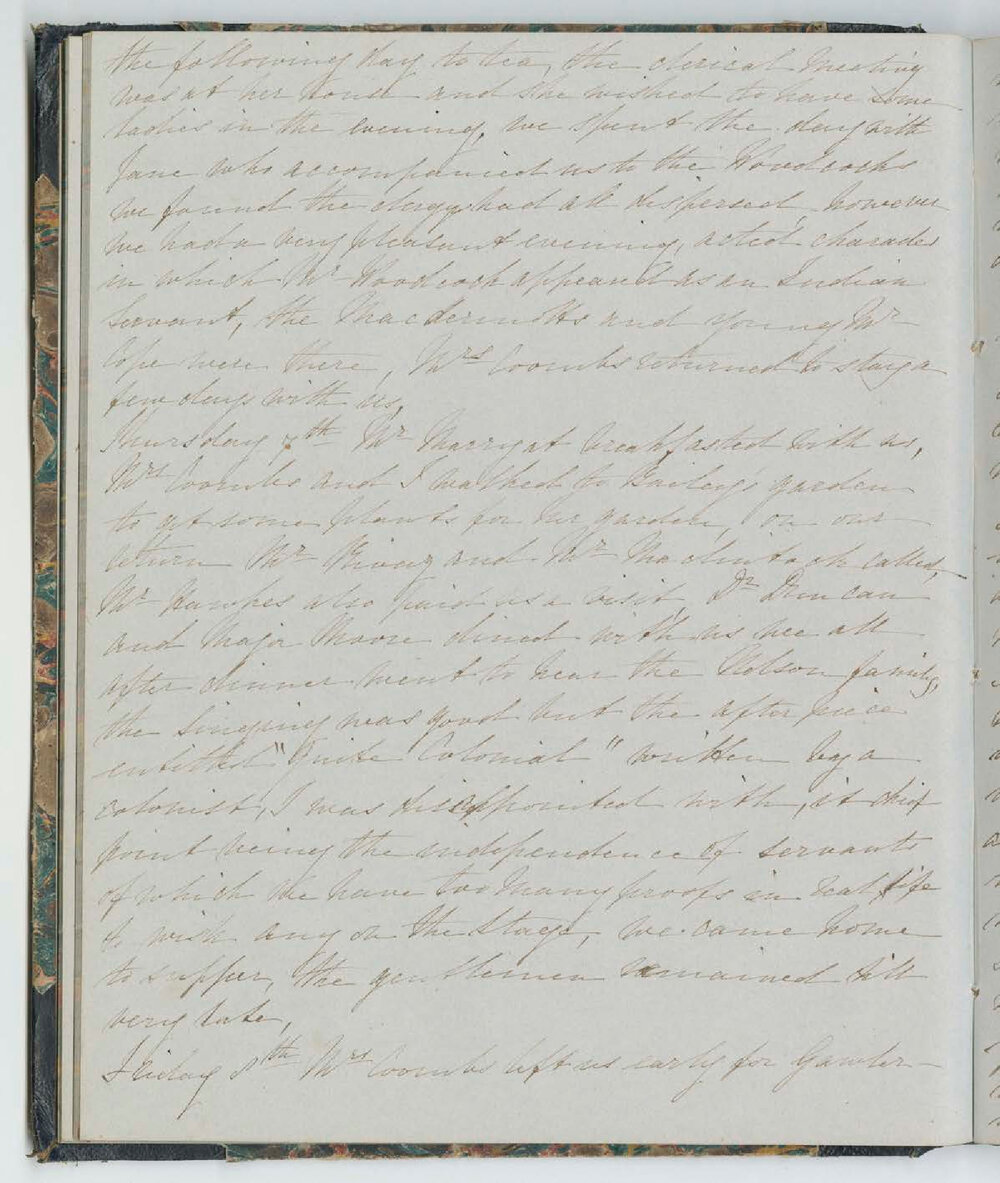 the following day to tea, the clerical Meeting
was at her house and she wished to have some
ladies in the evening, we spent the day with
Jane who accompanied us to the Woodcocks
we found the clergy had all dispersed, however
we had a very pleasant evening, acted charades
in which Mr Woodcock appeared as an Indian
Servant, the MacDermotts and young Mr
Cope were there, Mrs Coombs returned to stay a
few days with us,
Thursday 7th Mr Marryat breakfasted with us,
Mrs Coombs and I walked to Bailey's garden
to get some plants for her garden, on our
return Mr Rivaz and Mr Maclintock called,
Mr Hawkes also paid us a visit, Dr Duncan
and Major Moore dined with us we all
after dinner went to hear the family,
the Singing was good but the after piece
entitled "Quite Colonial" written by a
colonist, I was disappointed with, it chief
point being the independence of servants
of which we have too many proofs in real life
to wish any on the Stage, we came home
to supper, the gentlemen remained till
very late,
Friday 8th Mrs Coombs left us early for Gawler